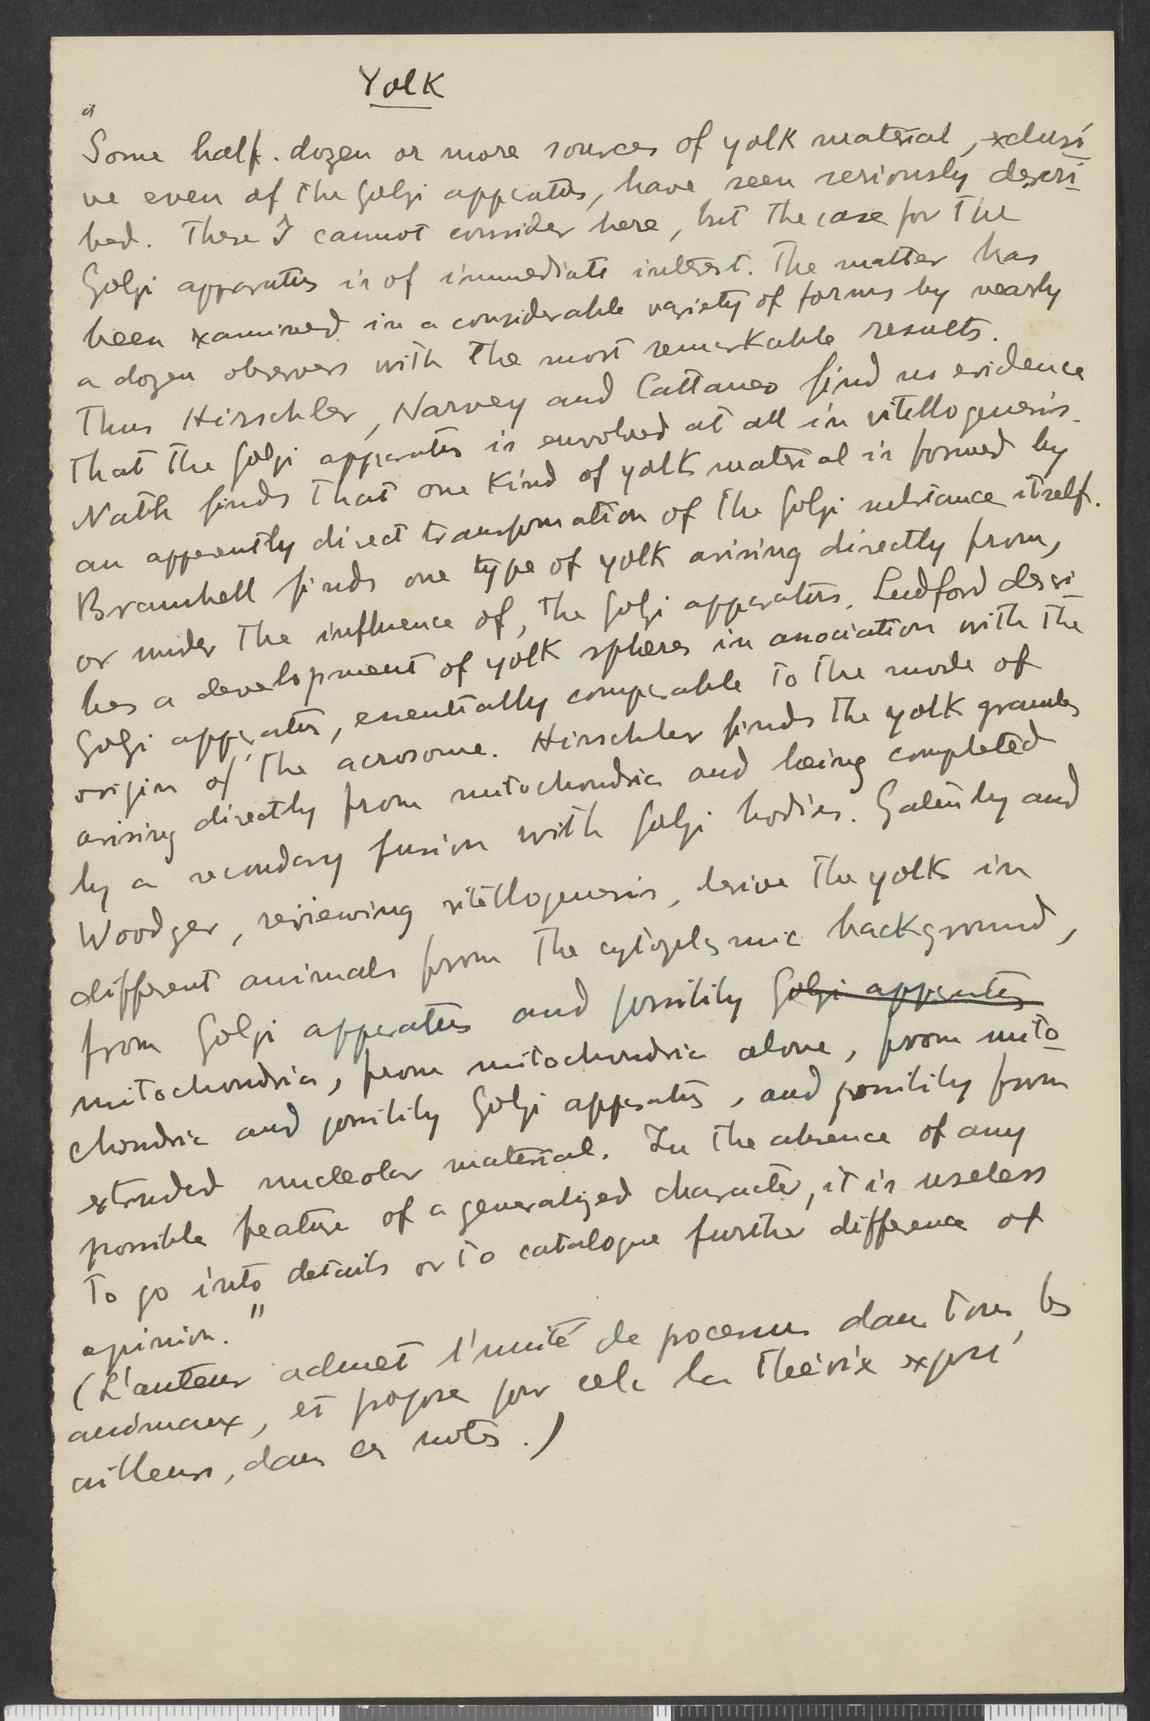 Yolk
"Some half. dozen or more sources of yolk material, exclusi
ve even of the Golgi appratus, have seen seriously descri
bed. These I cannot consider here, but the case for the
Golgi apparatus is of immediate interest. The matter has
been examined in a considerable variety of forms by nearly
a dozen observers with the most remarkable results.
Thus Hirschler, Narvey and Cattaneo find no evidence
that the Golgi apparatus is envolved at all in vitellogenesis.
Nath finds that one kind of yolk material is formed by
an apparently direct transformation of the Golgi substance itself.
Brambell finds one type of yolk arising directly from,
or under the influence of, the Golgi apparatus. Ludford descri
bes a development of yolk spheres in association with the
Golgi apparatus, essentially comparable to the mode of
origin of the acrosome. Hirschler finds the yolk granules
arising directly from mitochondria and being completed
by a secondary fusion with Golgi bodies. Gatenby and
Woodger, reviewing vitellogenesis, derive the yolk in
different animals from the cytoplasmic background,
from Golgi apparatus and possibily Golgi apparatus
mitochondria, from mitochondria alone, from mito
chondria and possibily Golgi apparatus, and possibily from
extruded nucleolar material. In the absence of any
possible feature of a generalized character, it is useless
to go into details or to catalogue further difference of
opinion."
(L'auteur admet l'unité de pocessus dans tous les
animaux, et propose pour cela la théorie exposé
ailleurs, dans ces notes.)